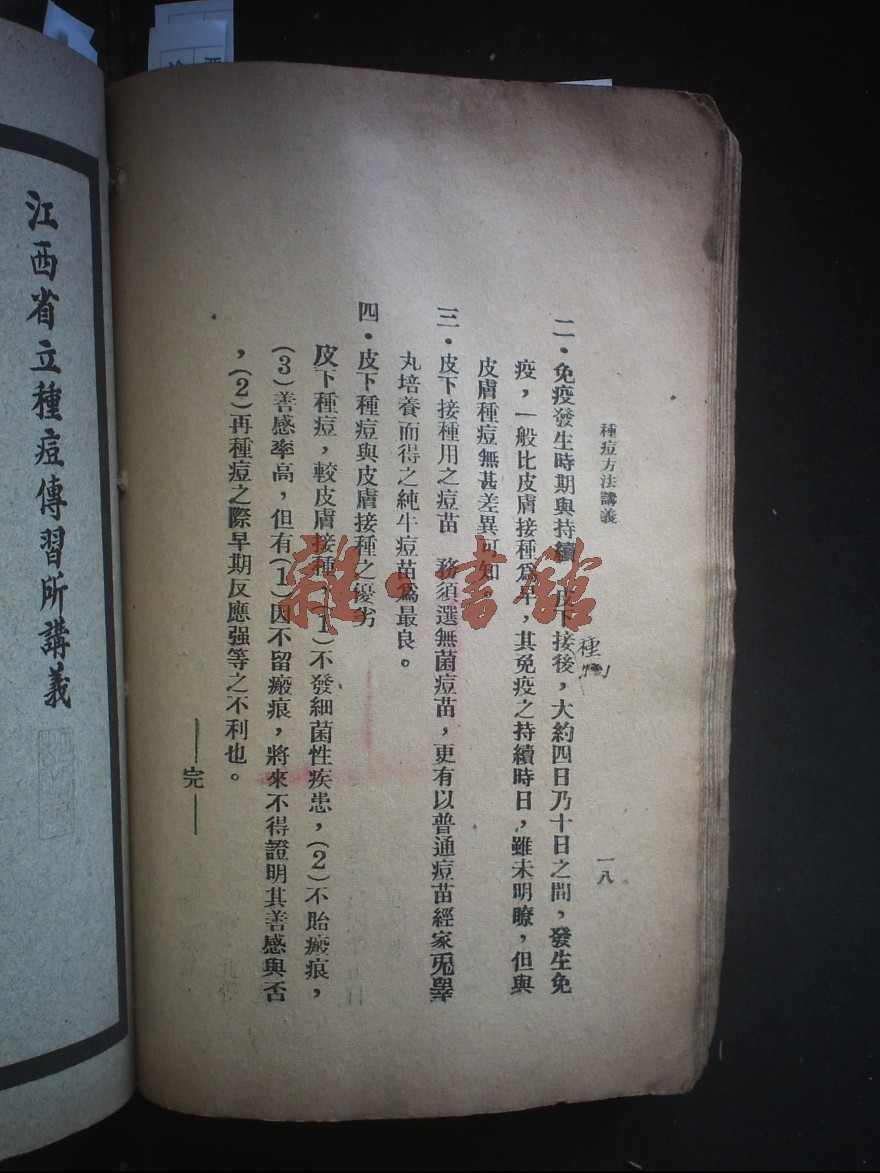 種痘方法講義
一八
二．免疫發生時期與持續　皮下接後，大約四日乃十日之間，發生免
種
疫，一般比皮膚接種爲早，其免疫之持續時日，雖未明瞭，但與
皮膚種痘無甚差異可知。
三．皮下接種用之痘苗　務須選無菌痘苗，更有以普通痘苗經家兎睪
丸培養而得之純牛痘苗爲最良。
四．皮下種痘與皮膚接種之優劣
皮下種痘，較皮膚接種，(1)不發細菌性疾患，(2)不貽瘢痕，
(3)善感率高，但有(1)因不留瘢痕，將來不得證明其善感與否
，(2)再種痘之際早期反應强等之不利也。
——完——
江西省立種痘傳習所講義
雜·書館